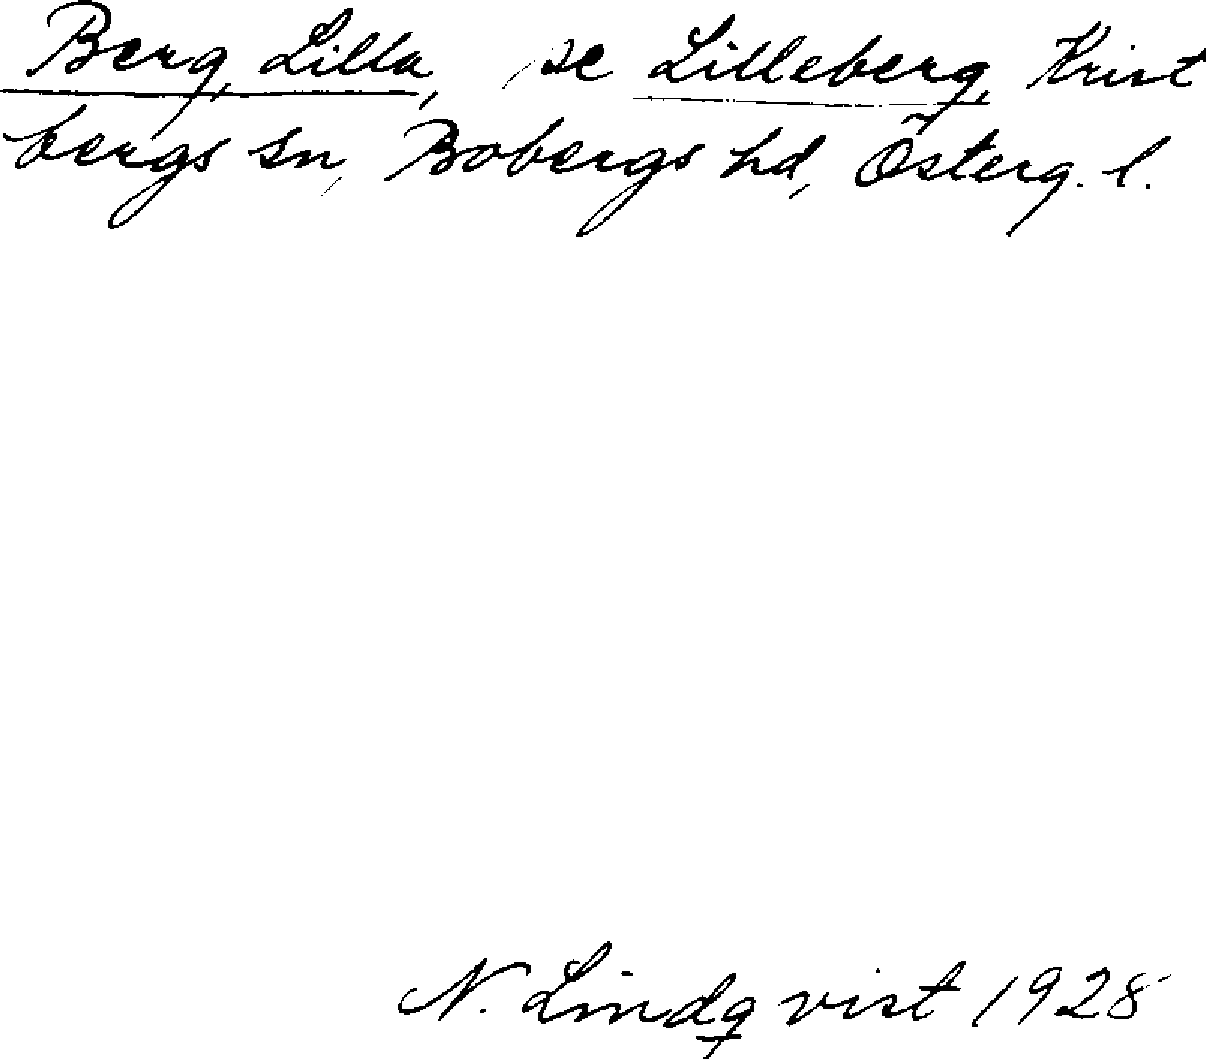 Berg, Lilla, se Lilleberg, Krist
bergs sn, Bobergs hd, Österg. l.
N. Lindqvist 1928